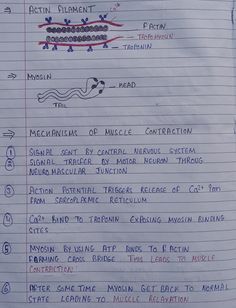 ⇒ ACTIN FILAMENT
Ca²⁺
F ACTIN
TROPOMYOSIN
TROPONIN
⇒ MYOSIN
HEAD
TAIL
⇒ MECHANISMS OF MUSCLE CONTRACTION
① SIGNAL SENT BY CENTRAL NERVOUS SYSTEM
② SIGNAL TRASFER BY MOTOR NEURON THROUG
NEUROMUSCULAR JUNCTION
③ ACTION POTENTIAL TRIGGERS RELEASE OF Ca²⁺ ION
FROM SARCOPLASMIC RETICULUM
④ Ca²⁺ BIND TO TROPONIN EXPOSING MYOSIN BINDING
SITES
⑤ MYOSIN BY USING ATP BINDS TO F ACTIN
FORMING CROSS BRIDGE THIS LEADS TO MUSCLE
CONTRACTION
⑥ AFTER SOME TIME MYOSIN GET BACK TO NORMAL
STATE LEADING TO MUSCLE RELAXATION